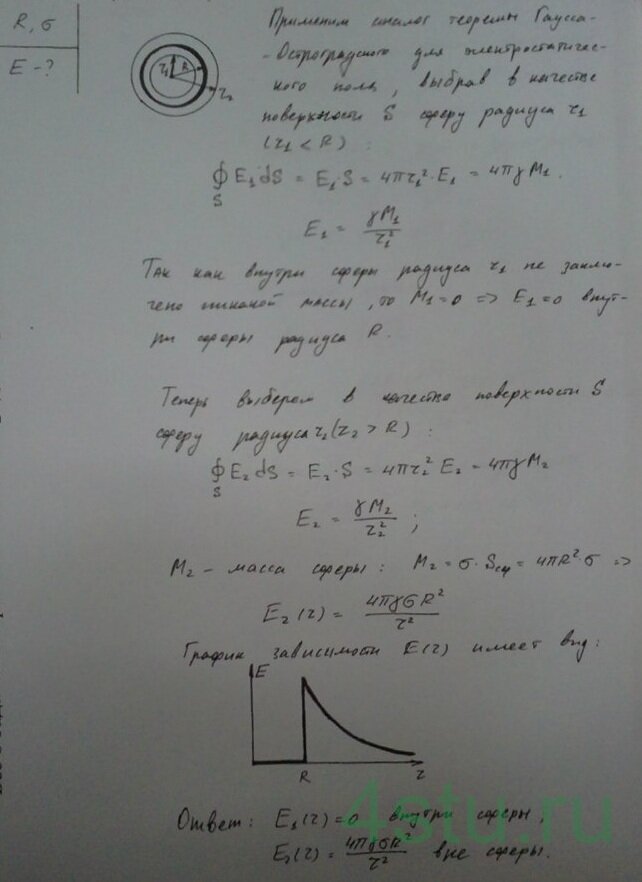 R, σ
E - ?
r₁ R r₂
Применим аналог теоремы Гаусса-
- Остроградского для электростатичес-
кого поля, выбрав в качестве
поверхности S сферу радиуса r₁
(r₁ < R) :
∮ E₁ dS = E₁·S = 4πr₁² · E₁ = 4πγM₁.
S
E₁ = γM₁ / r₁²
Так как внутри сферы радиуса r₁ не заклю-
чено никакой массы, то M₁ = 0 => E₁ = 0 внут-
ри сферы радиуса R.
Теперь выберем в качестве поверхности S
сферу радиуса r₂ (r₂ > R) :
∮ E₂ dS = E₂·S = 4πr₂² E₂ = 4πγM₂
S
E₂ = γM₂ / r₂² ;
M₂ - масса сферы : M₂ = σ · Sсф = 4πR²·σ =>
E₂(r) = 4πγσR² / r²
График зависимости E(r) имеет вид :
E
R r
Ответ : E₁(r) = 0 внутри сферы,
E₂(r) = 4πγσR² / r² вне сферы.
4stu.ru